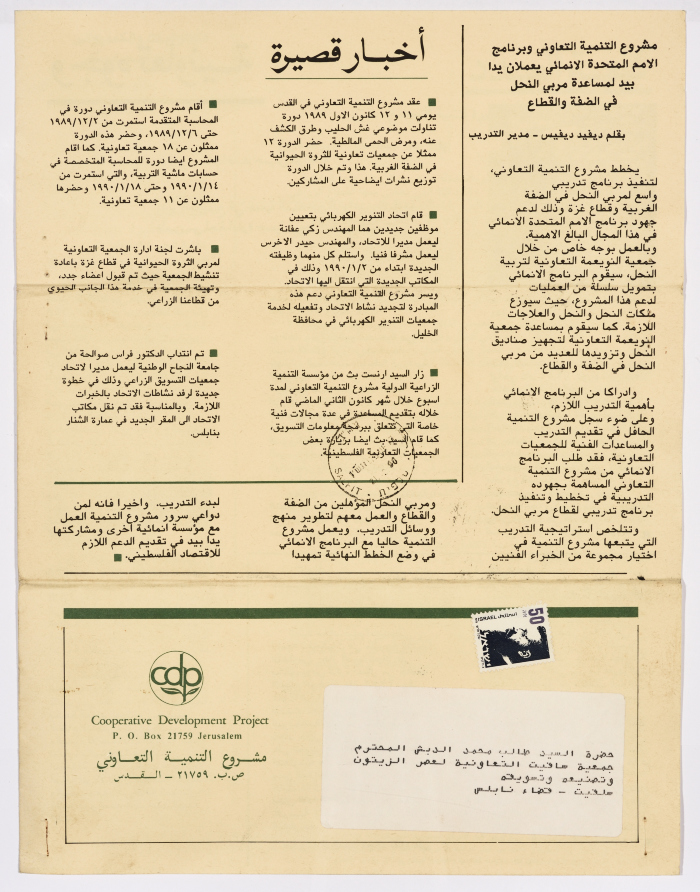 مشروع التنمية التعاوني وبرنامج
الامم المتحدة الانمائي يعملان يدا
بيد لمساعدة مربي النحل
في الضفة والقطاع
بقلم ديفيد ديفيس - مدير التدريب
يخطط مشروع التنمية التعاوني،
لتنفيذ برنامج تدريبي
واسع لمربي النحل في الضفة
الغربية وقطاع غزة وذلك لدعم
جهود برنامج الامم المتحدة الانمائي
في هذا المجال البالغ الاهمية.
وبالعمل بوجه خاص من خلال
جمعية النويعمة التعاونية لتربية
النحل، سيقوم البرنامج الانمائي
بتمويل سلسلة من العمليات
لدعم هذا المشروع، حيث سيوزع
ملكات النحل والنحل والعلاجات
اللازمة. كما سيقوم بمساعدة جمعية
النويعمة التعاونية لتجهيز صناديق
النحل وتزويدها للعديد من مربي
النحل في الضفة والقطاع.
وادراكا من البرنامج الانمائي
بأهمية التدريب اللازم،
وعلى ضوء سجل مشروع التنمية
الحافل في تقديم التدريب
والمساعدات الفنية للجمعيات
التعاونية، فقد طلب البرنامج
الانمائي من مشروع التنمية
التعاوني المساهمة بجهوده
التدريبية في تخطيط وتنفيذ
برنامج تدريبي لقطاع مربي النحل.
وتتلخص استراتيجية التدريب
التي يتبعها مشروع التنمية في
اختيار مجموعة من الخبراء الفنيين
ومربي النحل المؤهلين من الضفة
والقطاع والعمل معهم لتطوير منهج
ووسائل التدريب. ويعمل مشروع
التنمية حاليا مع البرنامج الانمائي
في وضع الخطط النهائية تمهيدا
لبدء التدريب. واخيرا فانه لمن
دواعي سرور مشروع التنمية العمل
مع مؤسسة انمائية اخرى ومشاركتها
يدا بيد في تقديم الدعم اللازم
للاقتصاد الفلسطيني.
أخبار قصيرة
عقد مشروع التنمية التعاوني في القدس
يومي ١١ و ١٢ كانون الاول ١٩٨٩ دورة
تناولت موضوعي غش الحليب وطرق الكشف
عنه، ومرض الحمى المالطية. حضر الدورة ١٢
ممثلا عن جمعيات تعاونية للثروة الحيوانية
في الضفة الغربية. هذا وتم خلال الدورة
توزيع نشرات ايضاحية على المشاركين.
قام اتحاد التنوير الكهربائي بتعيين
موظفين جديدين هما المهندس زكي عفانة
ليعمل مديرا للاتحاد، والمهندس حيدر الاخرس
ليعمل مشرفا فنيا. واستلم كل منهما وظيفته
الجديدة ابتداء من ١٩٩٠/١/٢ وذلك في
المكاتب الجديدة التي انتقل اليها الاتحاد.
ويسر مشروع التنمية التعاوني دعم هذه
المبادرة لتجديد نشاط الاتحاد وتفعيله لخدمة
جمعيات التنوير الكهربائي في محافظة
الخليل.
زار السيد ارنست بث من مؤسسة التنمية
الزراعية الدولية مشروع التنمية التعاوني لمدة
اسبوع خلال شهر كانون الثاني الماضي قام
خلاله بتقديم المساعدة في عدة مجالات فنية
خاصة التي تتعلق ببرمجة معلومات التسويق،
كما قام السيد بث ايضا بزيارة بعض
الجمعيات التعاونية الفلسطينية.
أقام مشروع التنمية التعاوني دورة في
المحاسبة المتقدمة استمرت من ١٩٨٩/١٢/٢
حتى ١٩٨٩/١٢/٦، وحضر هذه الدورة
ممثلون عن ١٨ جمعية تعاونية. كما اقام
المشروع ايضا دورة للمحاسبة المتخصصة في
حسابات ماشية التربية، والتي استمرت من
١٩٩٠/١/١٤ وحتى ١٩٩٠/١/١٨ وحضرها
ممثلون عن ١١ جمعية تعاونية.
باشرت لجنة ادارة الجمعية التعاونية
لمربي الثروة الحيوانية في قطاع غزة باعادة
تنشيط الجمعية حيث تم قبول اعضاء جدد،
وتهيئة الجمعية في خدمة هذا الجانب الحيوي
من قطاعنا الزراعي.
تم انتداب الدكتور فراس صوالحة من
جامعة النجاح الوطنية ليعمل مديرا لاتحاد
جمعيات التسويق الزراعي وذلك في خطوة
جديدة لرفد نشاطات الاتحاد بالخبرات
اللازمة. وبالمناسبة فقد تم نقل مكاتب
الاتحاد الى المقر الجديد في عمارة الشنار
بنابلس.
50
ISRAEL
cdp
Cooperative Development Project
P. O. Box 21759 Jerusalem
مشروع التنمية التعاوني
ص.ب. ٢١٧٥٩ - القدس
حضرة السيد طالب محمد الديش المحترم
جمعية سلفيت التعاونية لعصر الزيتون
وتصنيعه وتسويقه
سلفيت - قضاء نابلس